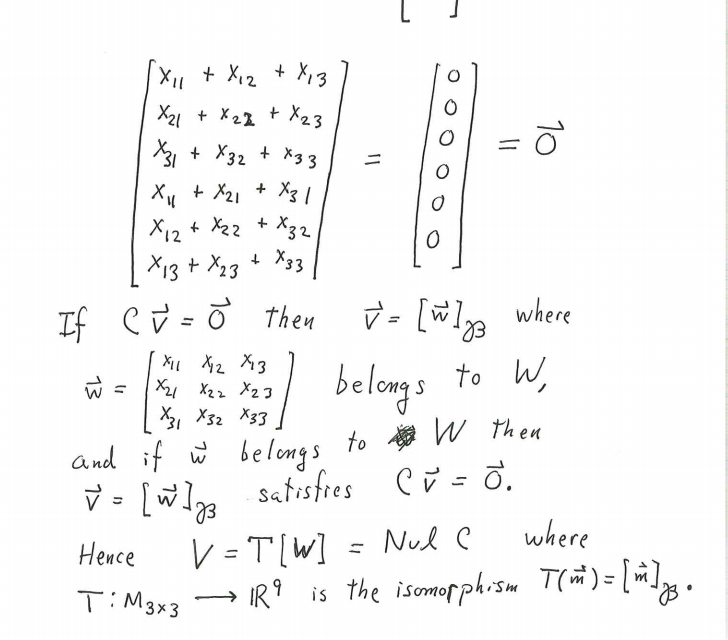 [ ]
[x₁₁ + x₁₂ + x₁₃
x₂₁ + x₂₂ + x₂₃
x₃₁ + x₃₂ + x₃₃
x₁₁ + x₂₁ + x₃₁
x₁₂ + x₂₂ + x₃₂
x₁₃ + x₂₃ + x₃₃] = [0 0 0 0 0 0] = 0⃗
If C v⃗ = 0⃗ then v⃗ = [w⃗]_ℬ where
w⃗ = [x₁₁ x₁₂ x₁₃
x₂₁ x₂₂ x₂₃
x₃₁ x₃₂ x₃₃] belongs to W,
and if w⃗ belongs to W then
v⃗ = [w⃗]_ℬ satisfies C v⃗ = 0⃗.
Hence V = T[W] = Nul C where
T : M₃ₓ₃ ⟶ ℝ⁹ is the isomorphism T(m⃗) = [m⃗]_ℬ.